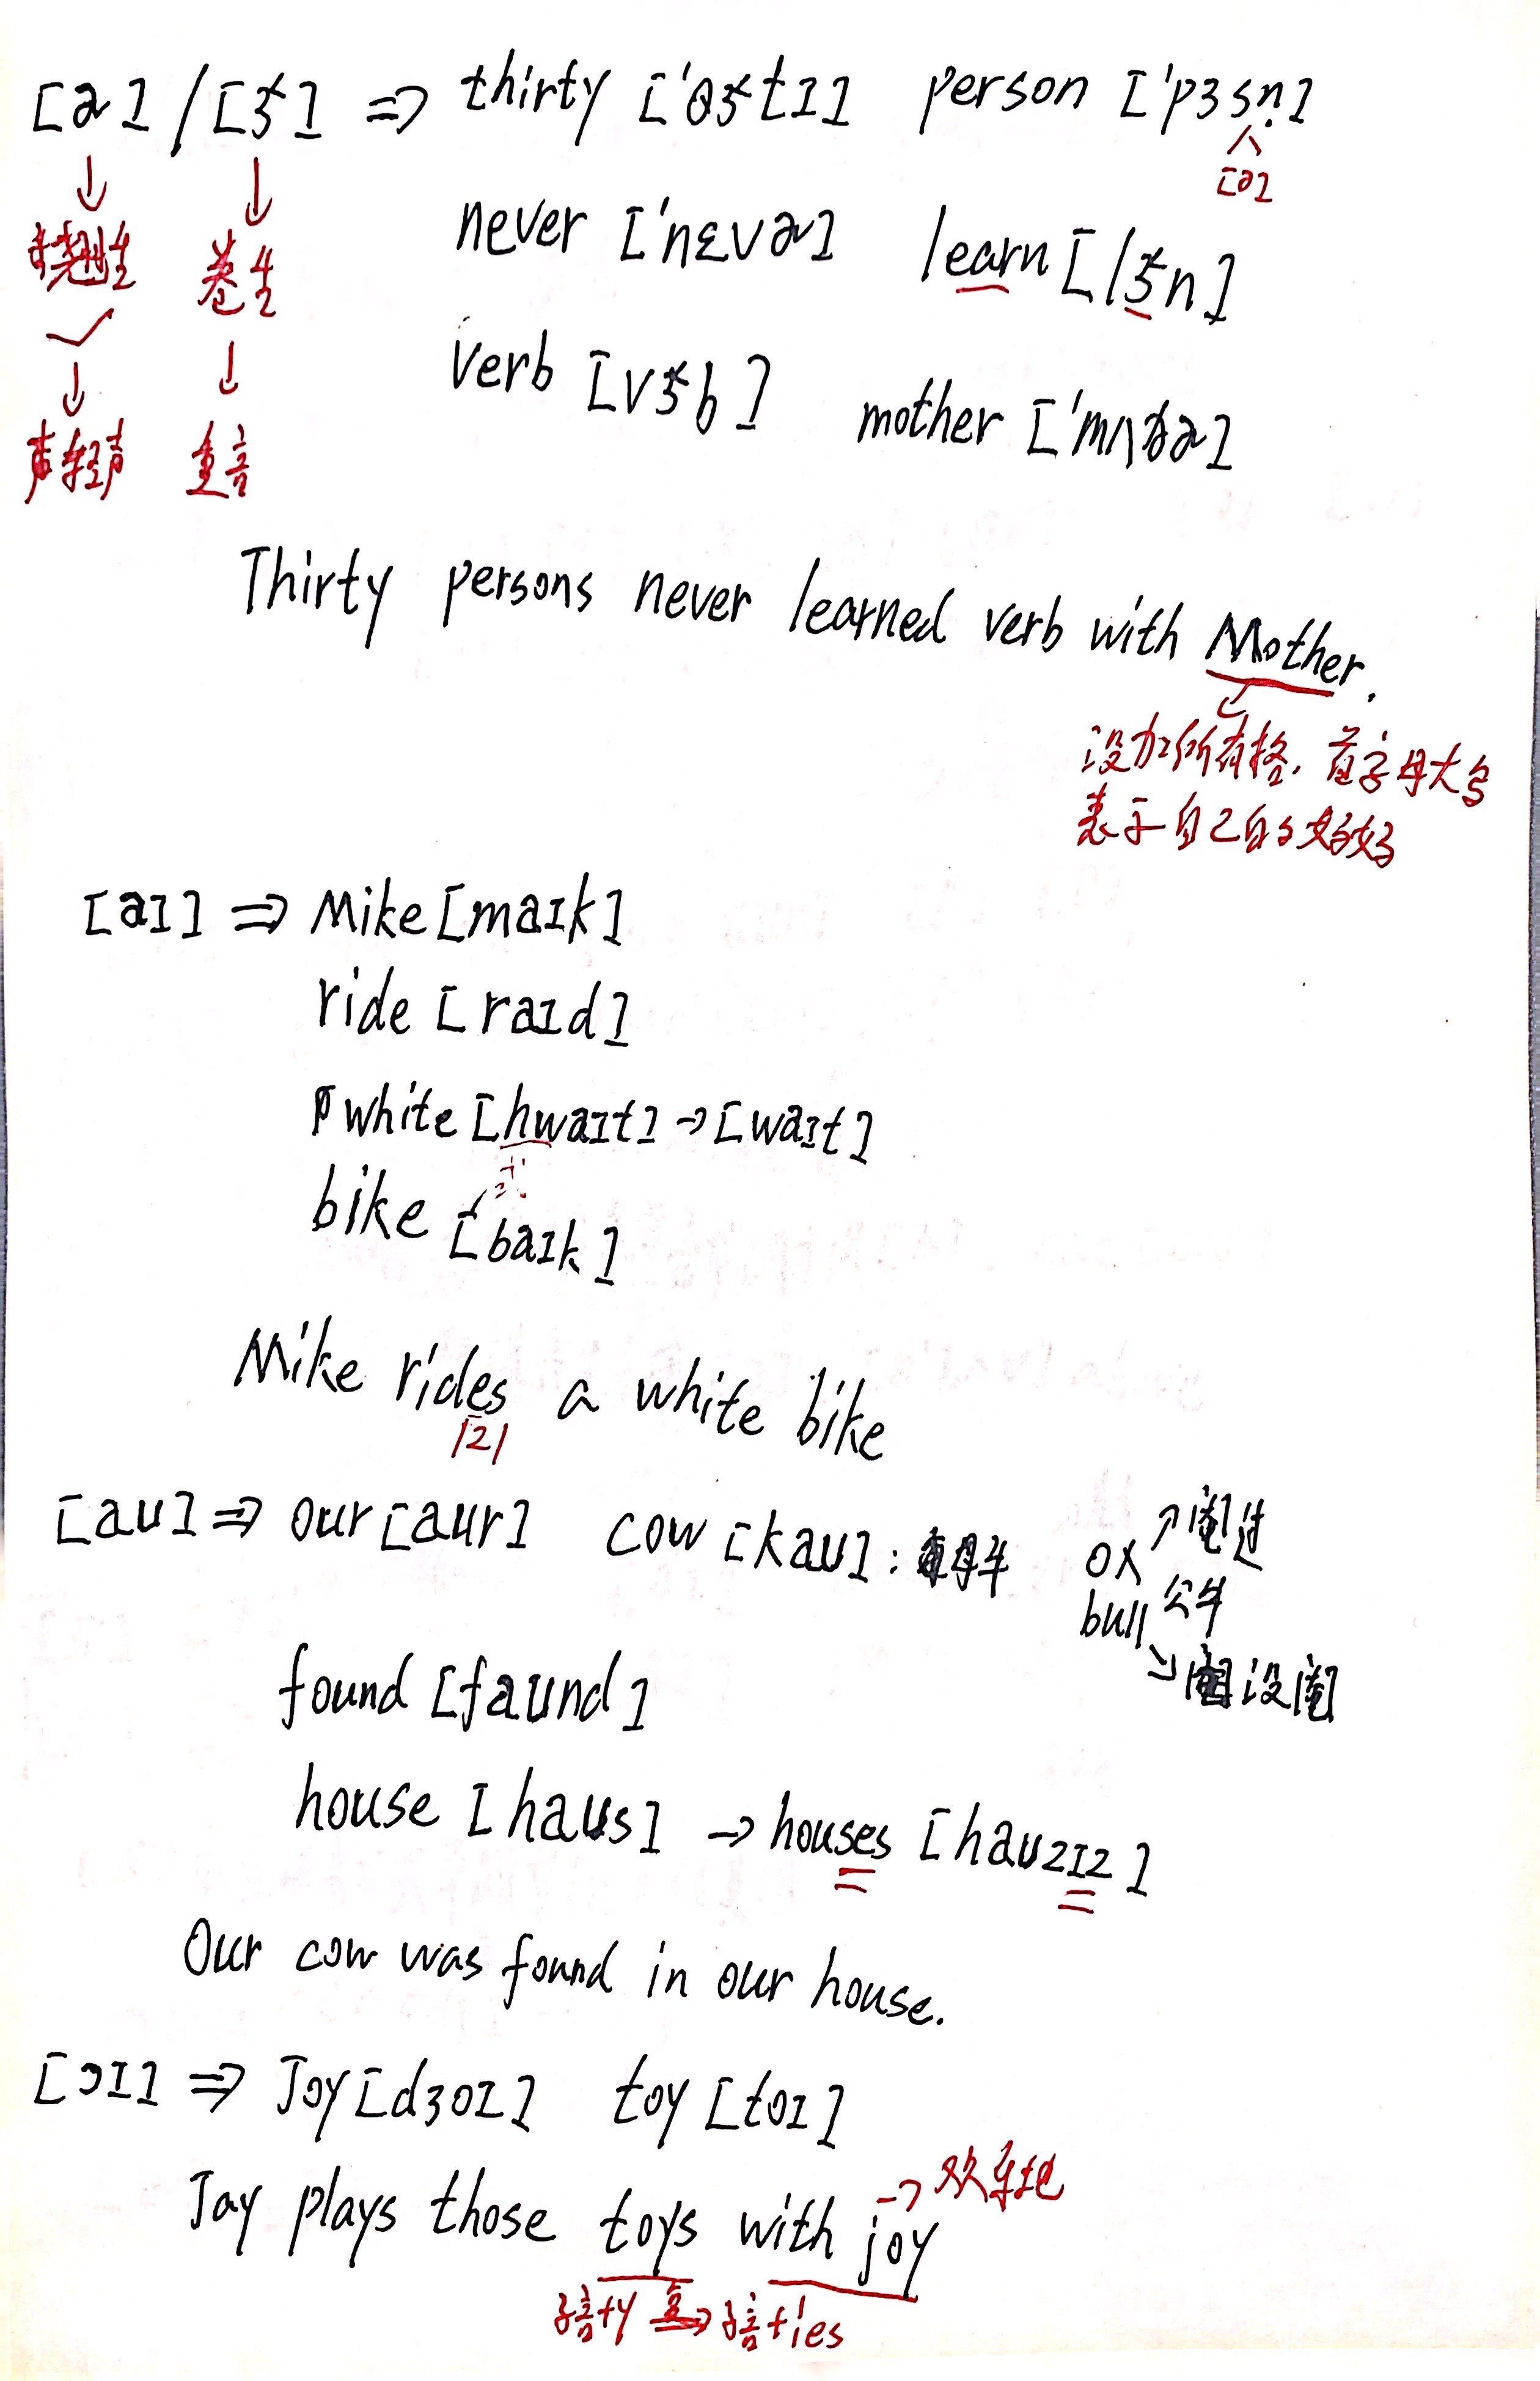 [ɚ] / [ɝ] => thirty ['θɝtɪ] person ['pɜsn̩]
[ə]
翘生 卷生
never ['nɛvɚ] learn [lɝn]
verb [vɝb] mother ['mʌðɚ]
轻声 重音
Thirty persons never learned verb with Mother.
没加所有格, 首字母大写
表示自己的妈妈
[aɪ] => Mike [maɪk]
ride [raɪd]
white [hwaɪt] → [waɪt]
bike [baɪk]
Mike rides a white bike
/z/
[aʊ] => our [aʊr] cow [kaʊ] : 母牛 ox ↗ 阉过
bull 公牛
↘ 没阉
found [faʊnd]
house [haʊs] → houses [haʊzɪz]
Our cow was found in our house.
[ɔɪ] => Joy [dʒɔɪ] toy [tɔɪ]
→ 欢乐地
Jay plays those toys with joy
子音+y 复→ 子音+ies